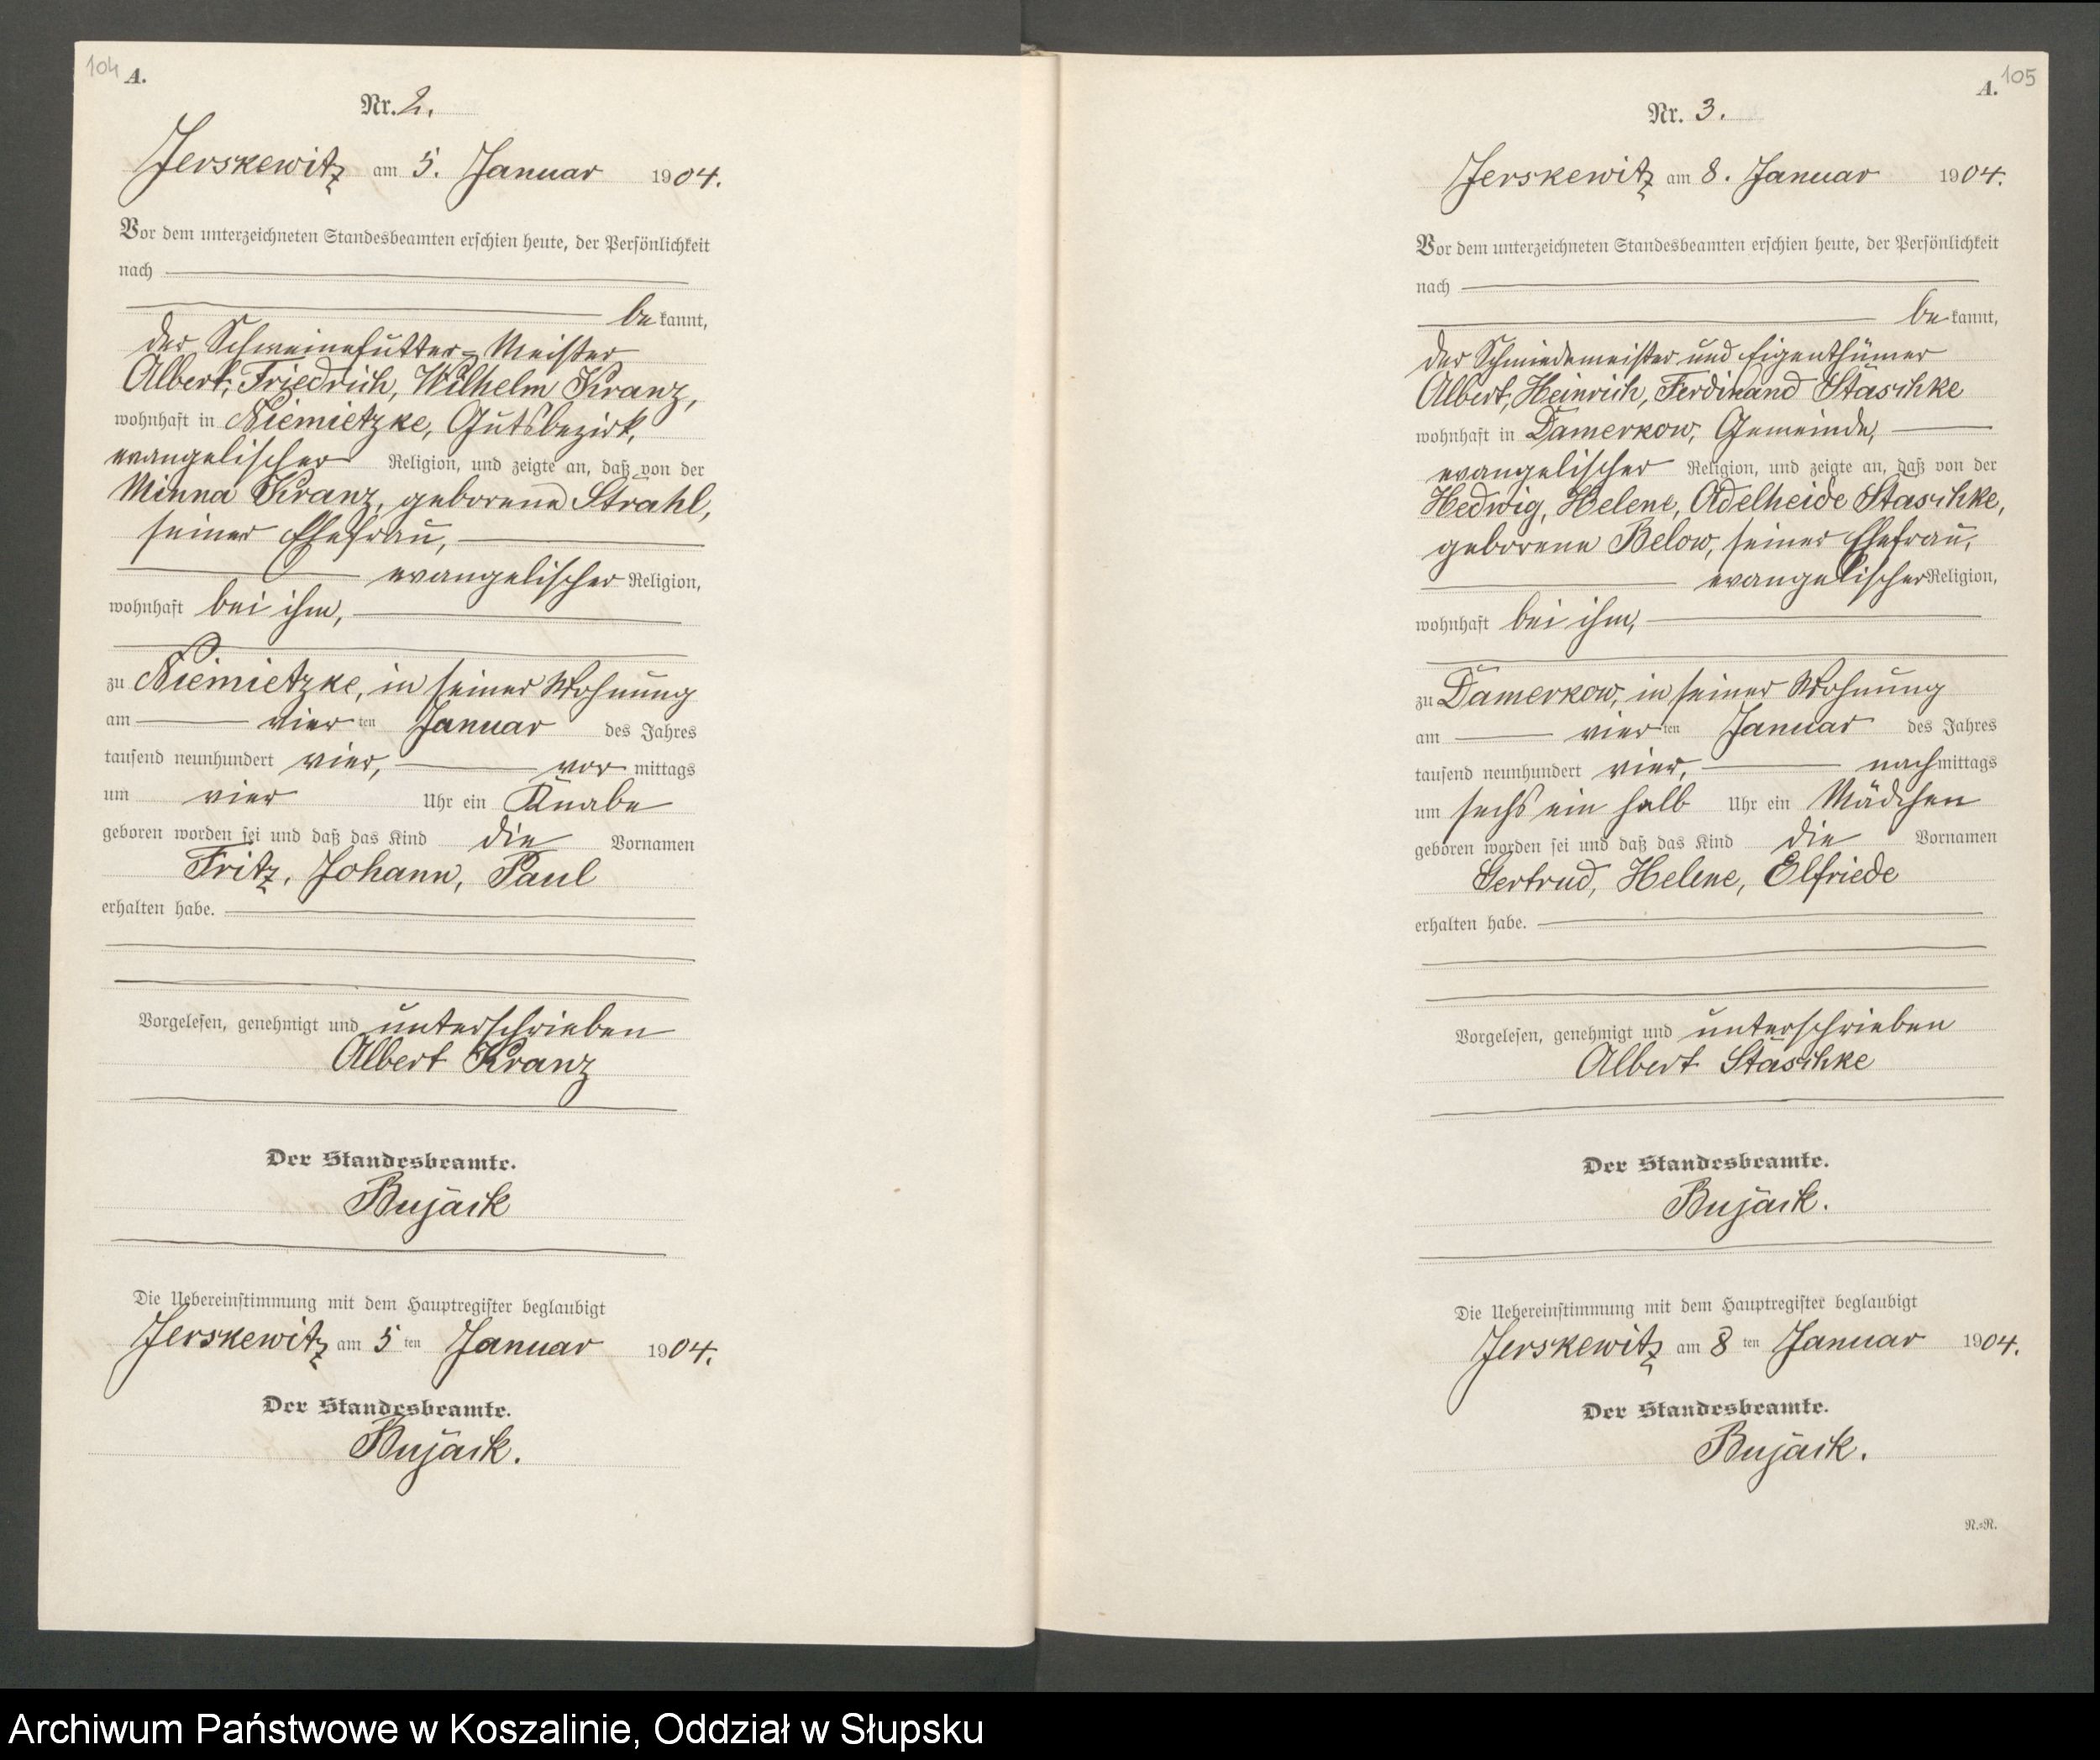 104 A.
Nr. 2.
Jerskewitz am 5. Januar 1904.
Vor dem unterzeichneten Standesbeamten erschien heute, der Persönlichkeit
nach
be kannt,
der Schweinefütter-Meister
Albert, Friedrich, Wilhelm Kranz,
wohnhaft in Niemietzke, Gutsbezirk,
evangelischer Religion, und zeigte an, daß von der
Minna Kranz, geborene Strahl,
seiner Ehefrau,
evangelischer Religion,
wohnhaft bei ihm,
zu Niemietzke, in seiner Wohnung
am vier ten Januar des Jahres
tausend neunhundert vier, vor mittags
um vier Uhr ein Knabe
geboren worden sei und daß das Kind die Vornamen
Fritz, Johann, Paul
erhalten habe.
Vorgelesen, genehmigt und unterschrieben
Albert Kranz
Der Standesbeamte.
Bujack
Die Uebereinstimmung mit dem Hauptregister beglaubigt
Jerskewitz am 5 ten Januar 1904.
Der Standesbeamte.
Bujack.
A. 105
Nr. 3.
Jerskewitz am 8. Januar 1904.
Vor dem unterzeichneten Standesbeamten erschien heute, der Persönlichkeit
nach
be kannt,
der Schmiedemeister und Eigenthümer
Albert, Heinrich, Ferdinand Stäschke
wohnhaft in Damerkow, Gemeinde,
evangelischer Religion, und zeigte an, daß von der
Hedwig, Helene, Adelheide Stäschke,
geborene Below, seiner Ehefrau,
evangelischer Religion,
wohnhaft bei ihm,
zu Damerkow, in seiner Wohnung
am vier ten Januar des Jahres
tausend neunhundert vier, nach mittags
um sechs ein halb Uhr ein Mädchen
geboren worden sei und daß das Kind die Vornamen
Gertrud, Helene, Elfriede
erhalten habe.
Vorgelesen, genehmigt und unterschrieben
Albert Stäschke
Der Standesbeamte.
Bujack.
Die Uebereinstimmung mit dem Hauptregister beglaubigt
Jerskewitz am 8 ten Januar 1904.
Der Standesbeamte.
Bujack.
N.=R.
Archiwum Państwowe w Koszalinie, Oddział w Słupsku